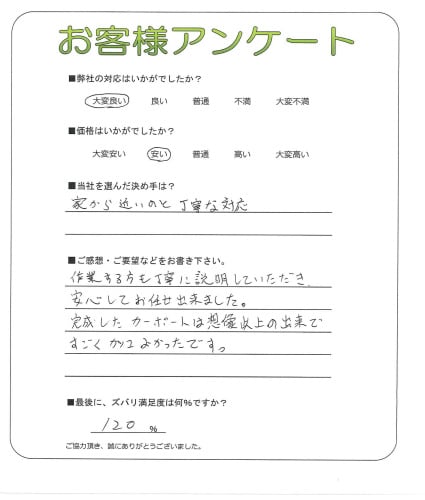 お客様アンケート
■弊社の対応はいかがでしたか？
大変良い 良い 普通 不満 大変不満
■価格はいかがでしたか？
大変安い 安い 普通 高い 大変高い
■当社を選んだ決め手は？
家から近いのと丁寧な対応
■ご感想・ご要望などをお書き下さい。
作業する方も丁寧に説明していただき、
安心してお任せ出来ました。
完成したカーポートは想像以上の出来で
すごくカッコよかったです。
■最後に、ズバリ満足度は何％ですか？
120 ％
ご協力頂き、誠にありがとうございました。